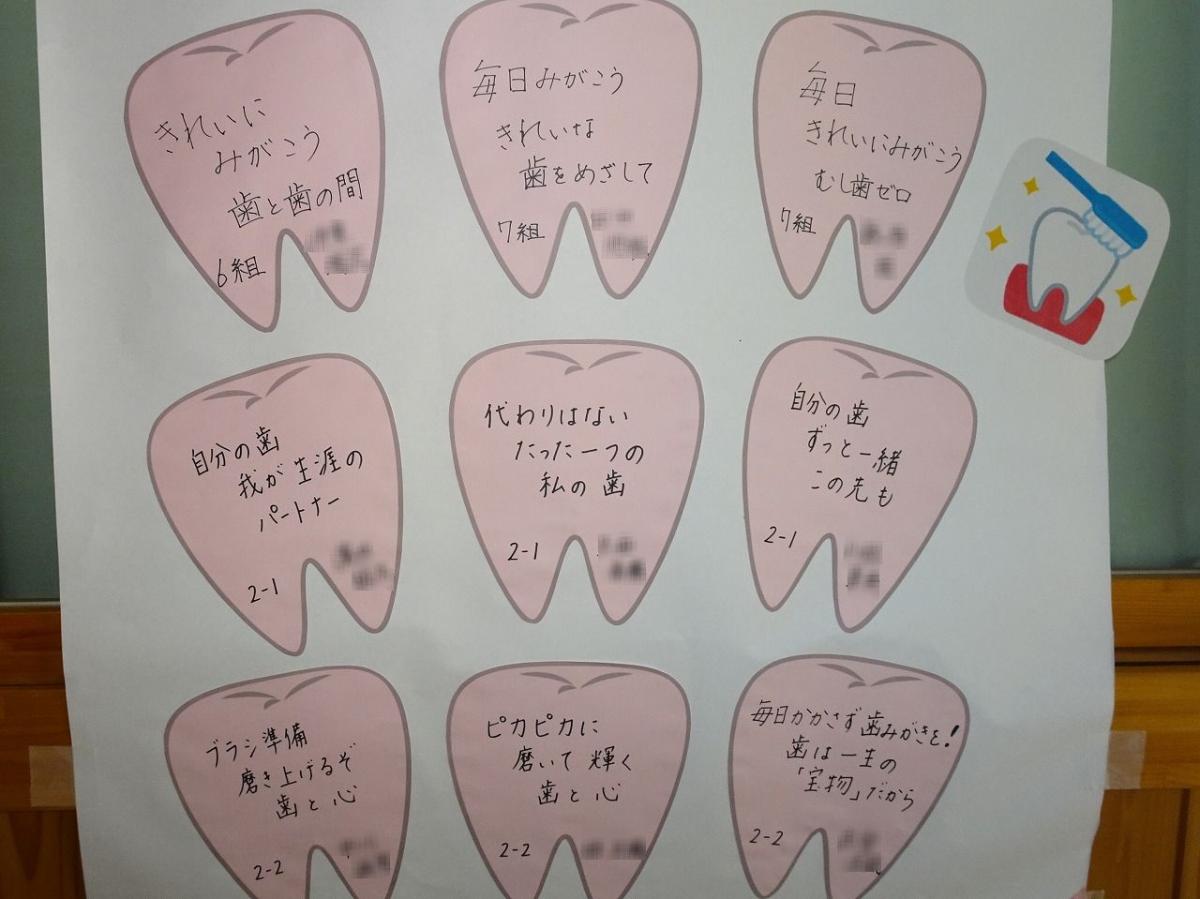 きれいに
みがこう
歯と歯の間
6組
毎日みがこう
きれいな
歯をめざして
7組
毎日
きれいにみがこう
むし歯ゼロ
7組
自分の歯
我が生涯の
パートナー
2-1
代わりはない
たった一つの
私の歯
2-1
自分の歯
ずっと一緒
この先も
2-1
ブラシ準備
磨き上げるぞ
歯と心
2-2
ピカピカに
磨いて輝く
歯と心
2-2
毎日かかさず歯みがきを!
歯は一生の
「宝物」だから
2-2